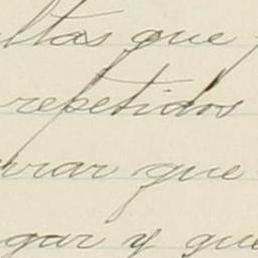 ltas que
repetidos
rar que
gar y que